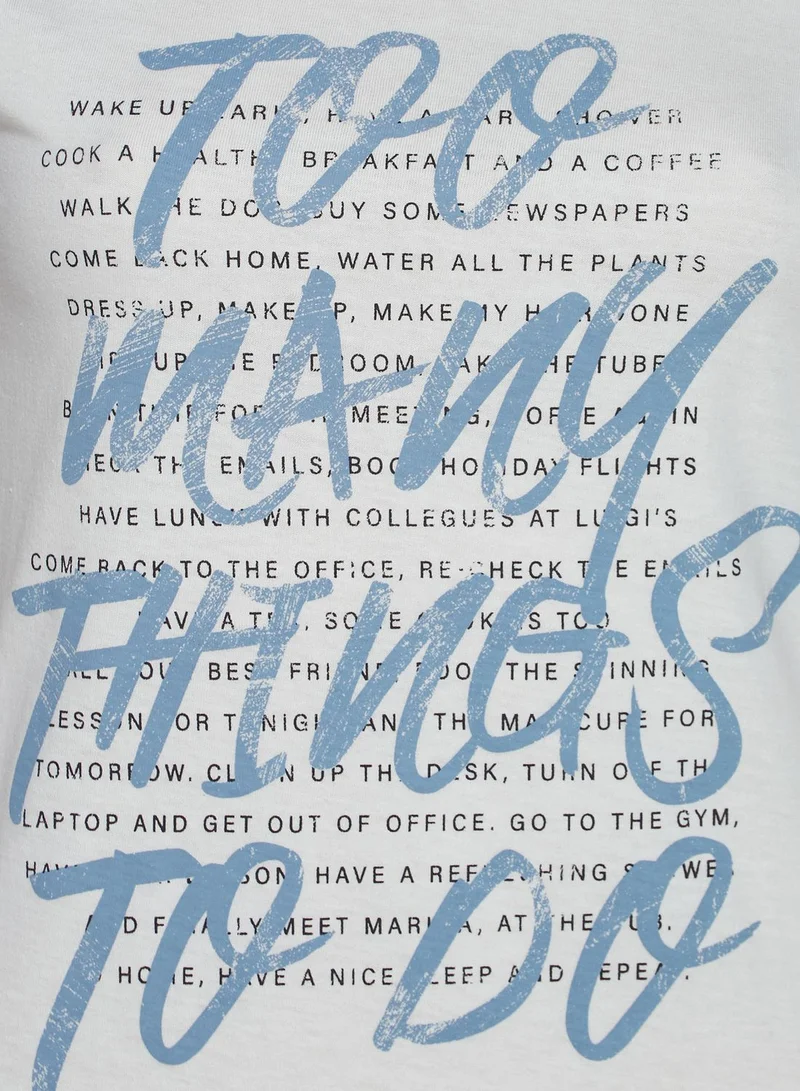 TOO
MANY
THINGS
TO DO
WAKE UP EARLY, HAVE A WARM SHOWER
COOK A HEALTHY BREAKFAST AND A COFFEE
WALK THE DOG, BUY SOME NEWSPAPERS
COME BACK HOME, WATER ALL THE PLANTS
DRESS UP, MAKE UP, MAKE MY HAIR DONE
UP THE BEDROOM, TAKE THE TUBE
BE IN TIME FOR THE MEETING, COFFEE AGAIN
CHECK THE EMAILS, BOOK HOLIDAY FLIGHTS
HAVE LUNCH WITH COLLEGUES AT LUIGI'S
COME BACK TO THE OFFICE, RE-CHECK THE EMAILS
HAVE A TEA, SOME COOKIES TOO
CALL YOUR BEST FRIEND, BOOK THE SPINNING
LESSON FOR TONIGHT AND THE MANICURE FOR
TOMORROW. CLEAN UP THE DESK, TURN OFF THE
LAPTOP AND GET OUT OF OFFICE. GO TO THE GYM,
HAVE LESSON, HAVE A REFRESHING SHOWER
AND FINALLY MEET MARIKA, AT THE PUB.
HOME, HAVE A NICE SLEEP AND REPEAT.